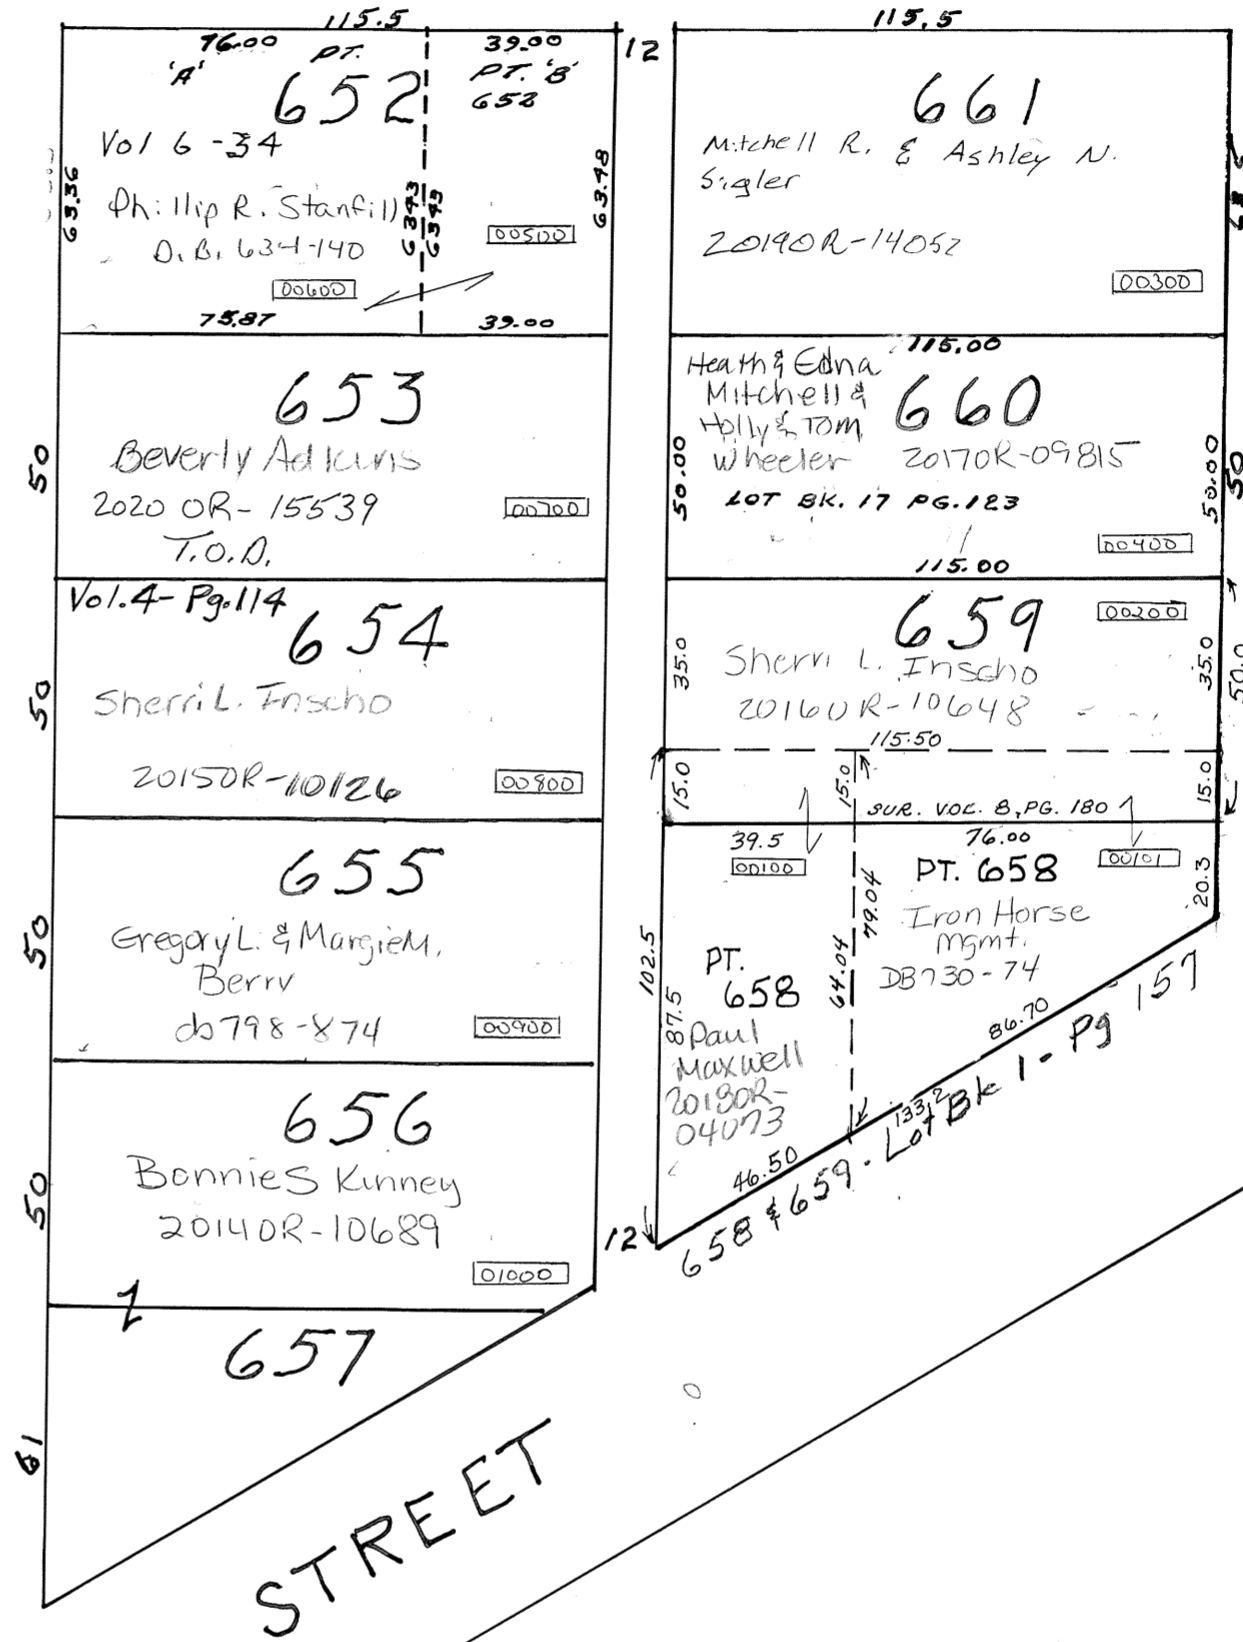 115.5
76.00
39.00
12
'A'
PT.
652
PT. 'B'
652
Vol 6 -34
63.36
Phillip R. Stanfill
D.B. 634-140
6343
6343
63.48
00500
00600
75.87
39.00
653
Beverly Adkins
50
2020 OR- 15539
T.O.D.
00700
Vol.4- Pg.114
654
50
Sherri L. Inscho
2015OR-10126
00800
655
50
Gregory L. & Margie M.
Berry
db798-874
00900
656
Bonnie S Kinney
50
2014OR-10689
01000
657
61
STREET
115.5
661
Mitchell R. & Ashley N.
Sigler
2019OR-14052
00300
115.00
Heath & Edna
Mitchell &
Holly & Tom
Wheeler
660
2017OR-09815
50.00
50.00
50
LOT BK. 17 PG. 123
00400
115.00
659
00200
35.0
Sherri L. Inscho
2016OR-10648
35.0
50.0
115.50
15.0
15.0
15.0
SUR. VOL. 8, PG. 180
39.5
76.00
00100
00101
PT. 658
20.3
Iron Horse
Mgmt.
DB730-74
79.04
64.04
102.5
87.5
PT.
658
Paul
Maxwell
2018OR-
04073
86.70
133.2
46.50
12
658 & 659 - Lot Bk 1 - Pg 157